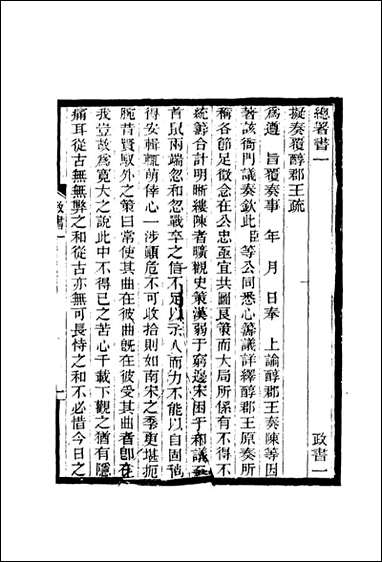 總署書一　政書一
擬奏覆醇郡王疏
為遵　旨覆奏事　年　月　日奉　上諭醇郡王奏陳等因
著該衙門議奏欽此臣等公同悉心籌議詳繹醇郡王原奏所
稱各節足徵念在公忠亟宜共圖良策而大局所係有不得不
統籌合計明晰縷陳者曠觀史策漢弱于窮邊宋困于和議至
首鼠兩端忽和忽戰卒之信不足以示人而力不能以自固迨
得安輯輒萌倖心一涉顛危不可收拾則如南宋之季更堪扼
腕昔賢馭外之策曰常使其曲在彼曲既在彼受其曲者卽在
我豈故為寬大之說此中不得已之苦心千載下觀之猶有隱
痛耳從古無無弊之和從古亦無可長恃之和不必惜今日之
政書一
一